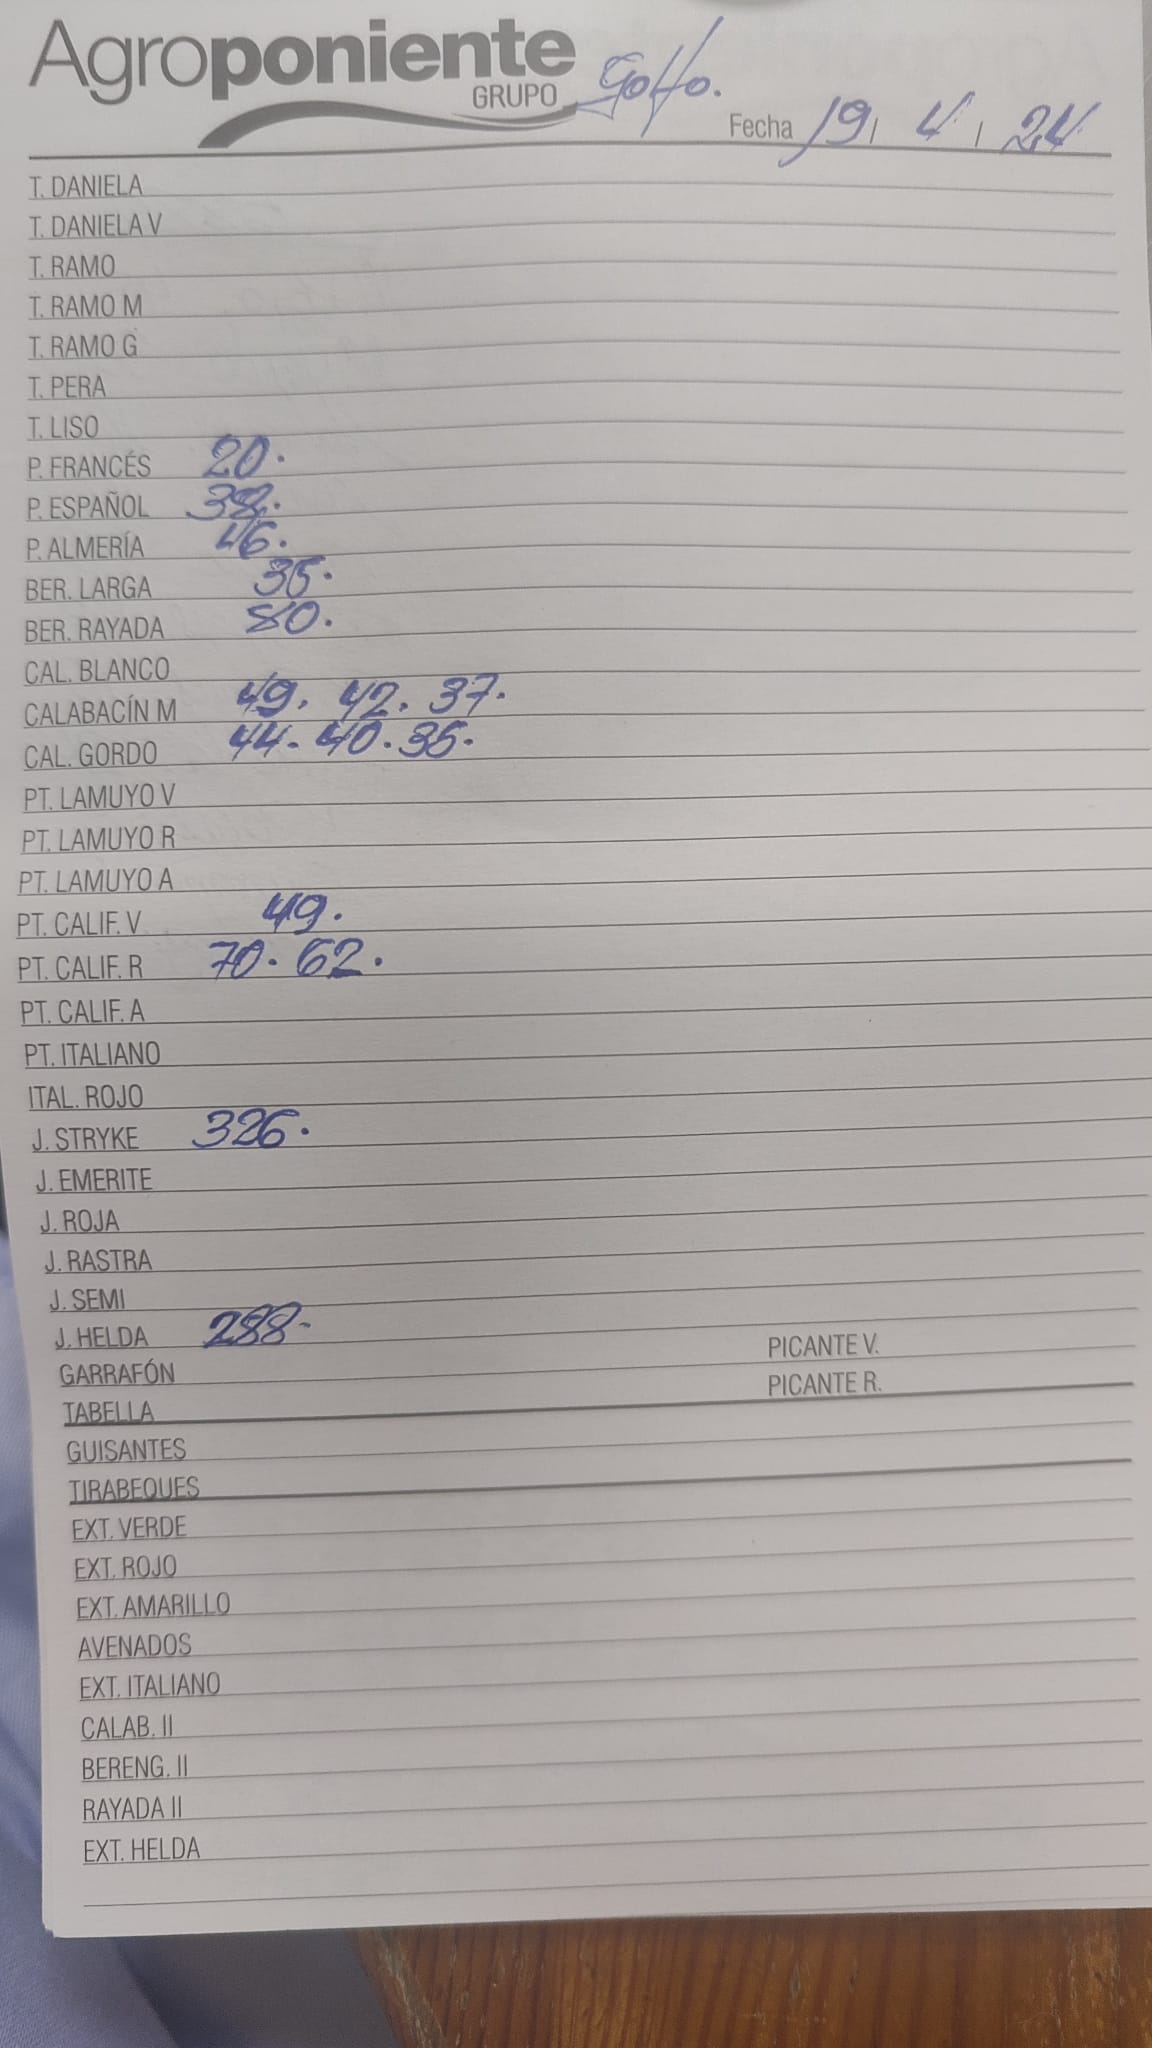 Agroponiente
GRUPO
Golfo.
Fecha 19, 4, 24
T. DANIELA
T. DANIELA V
T. RAMO
T. RAMO M
T. RAMO G
T. PERA
T. LISO
P. FRANCÉS 20.
P. ESPAÑOL 38.
P. ALMERÍA 46.
BER. LARGA 35.
BER. RAYADA 80.
CAL. BLANCO
CALABACÍN M 49. 42. 37.
CAL. GORDO 44. 40. 35.
PT. LAMUYO V
PT. LAMUYO R
PT. LAMUYO A
PT. CALIF. V 49.
PT. CALIF. R 70. 62.
PT. CALIF. A
PT. ITALIANO
ITAL. ROJO
J. STRYKE 326.
J. EMERITE
J. ROJA
J. RASTRA
J. SEMI
J. HELDA 288.
PICANTE V.
GARRAFÓN
PICANTE R.
TABELLA
GUISANTES
TIRABEQUES
EXT. VERDE
EXT. ROJO
EXT. AMARILLO
AVENADOS
EXT. ITALIANO
CALAB. II
BERENG. II
RAYADA II
EXT. HELDA